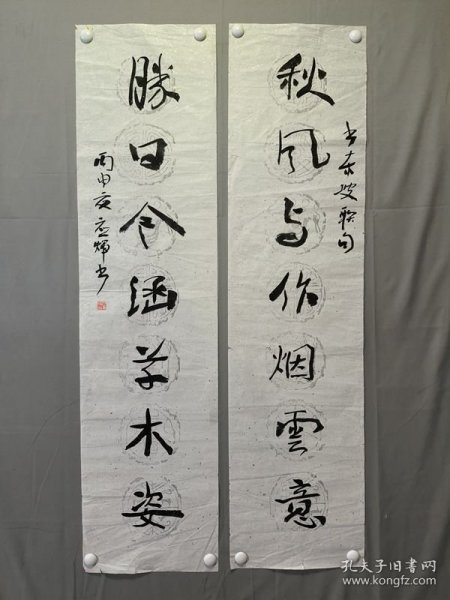 秋风与作烟雲意
书东坡联句
勝日令涵草木姿
丙申夜应炜书
孔夫子旧书网
www.kongfz.com